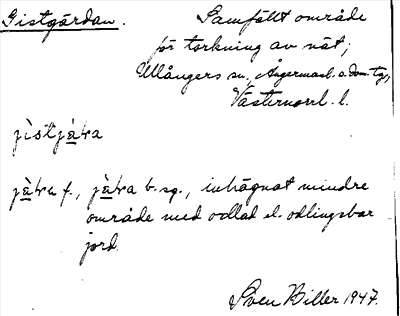 Gistgärdan. Samfällt område
för torkning av nät;
Ullångers sn, Ångermanl. s. dom. tg,
Västernorrl. l.
jìstjàra
jàra f., jàra b. sg., inhägnat mindre
område med odlad el. odlingsbar
jord.
Sven Biller 1947.